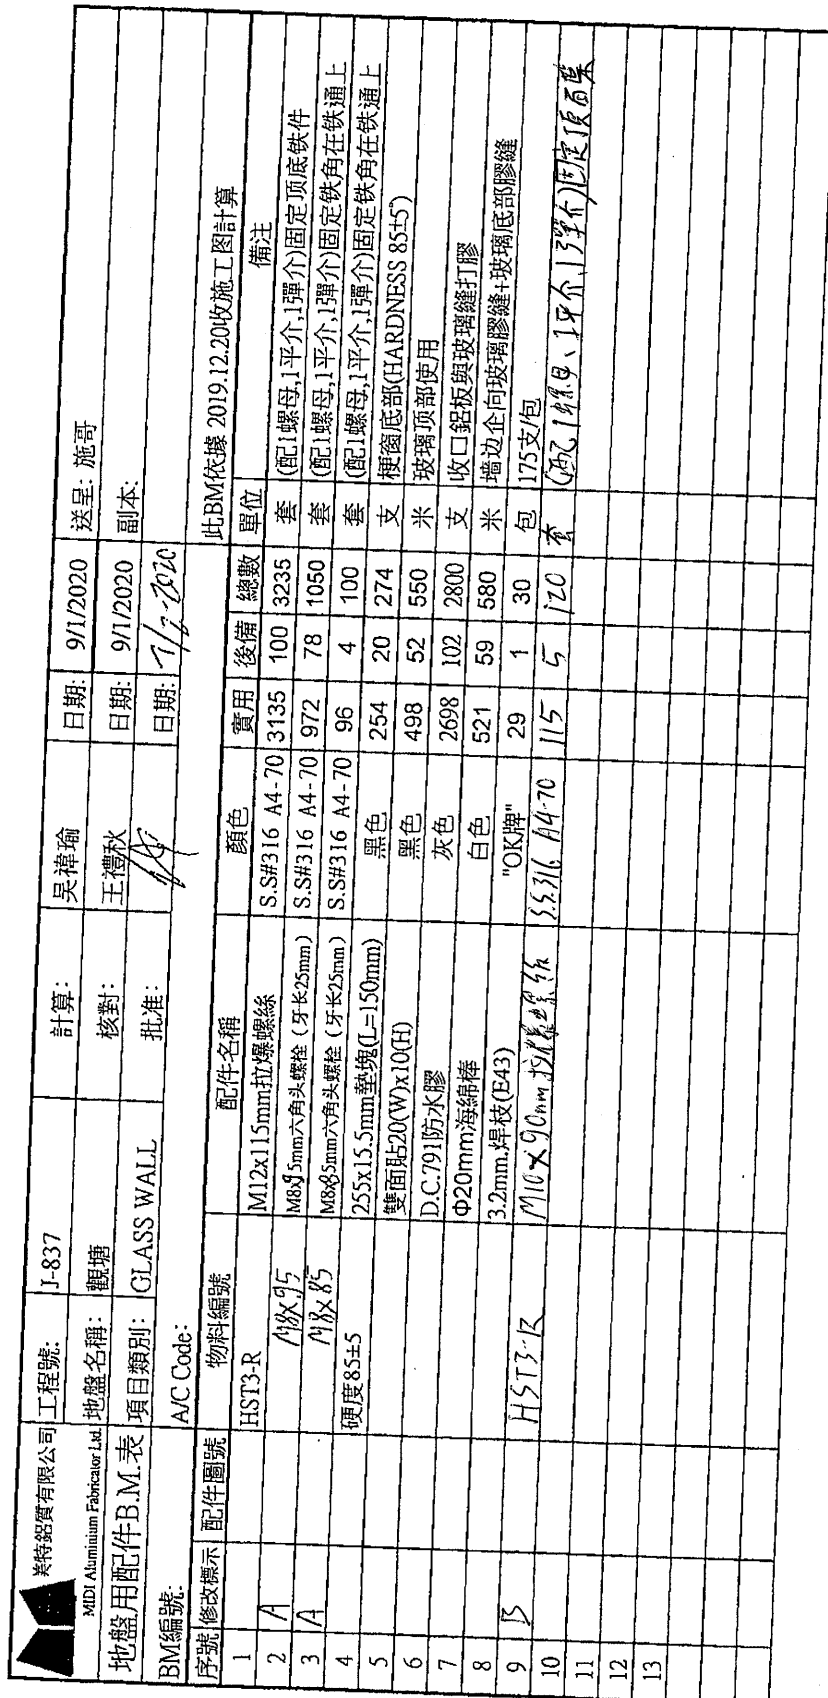 美特鋁質有限公司 工程號: J-837 計算: 吴禕瑜 日期: 9/1/2020 送呈: 施哥
MIDI Aluminium Fabricator Ltd. 地盤名稱: 觀塘 核對: 王禮秋 日期: 9/1/2020 副本:
地盤用配件B.M.表 項目類別: GLASS WALL 批准: 日期:
BM編號: A/C Code: 此BM依據 2019.12.20收施工图計算
序號 修改標示 配件圖號 物料編號 配件名稱 顏色 實用 後備 總數 單位 備注
1 HST3-R M12x115mm拉爆螺絲 S.S#316 A4-70 3135 100 3235 套 (配1螺母,1平介,1彈介)固定顶底铁件
2 A M8x95 M8x95mm六角头螺栓（牙长25mm） S.S#316 A4-70 972 78 1050 套 (配1螺母,1平介,1彈介)固定铁角在铁通上
3 A M8x85 M8x85mm六角头螺栓（牙长25mm） S.S#316 A4-70 96 4 100 套 (配1螺母,1平介,1彈介)固定铁角在铁通上
4 硬度85±5 255x15.5mm墊塊(L=150mm) 黑色 254 20 274 支 梗窗底部(HARDNESS 85±5°)
5 雙面貼20(W)x10(H) 黑色 498 52 550 米 玻璃顶部使用
6 D.C.791防水膠 灰色 2698 102 2800 支 收口鋁板與玻璃縫打膠
7 Φ20mm海綿棒 白色 521 59 580 米 墙边企向玻璃膠縫+玻璃底部膠縫
8 3.2mm焊枝(E43) "OK牌" 29 1 30 包 175支/包
9 B HST3-R M10x90mm拉爆螺絲 S.S316 A4-70 115 5 120 套 (配1螺母、1平介,1彈介)固定顶
10
11
12
13